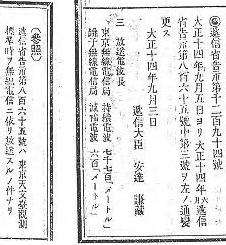 ◎遞信省告示第千二百九十四號
大正十四年九月五日ヨリ大正十四年 月遞信
省告示第八百六十五號中第三號ヲ左ノ通變
更ス
大正十四年九月三日
遞信大臣 安達 謙藏
三 放送電波長
東京無線電信局 持續電波 七千七百「メートル」
銚子無線電信局 減幅電波 六百「メートル」
(參照)
遞信省告示第八百六十五號ハ東京天文臺觀測
標準時ヲ無線電信ニ依リ放送スルノ件ナリ